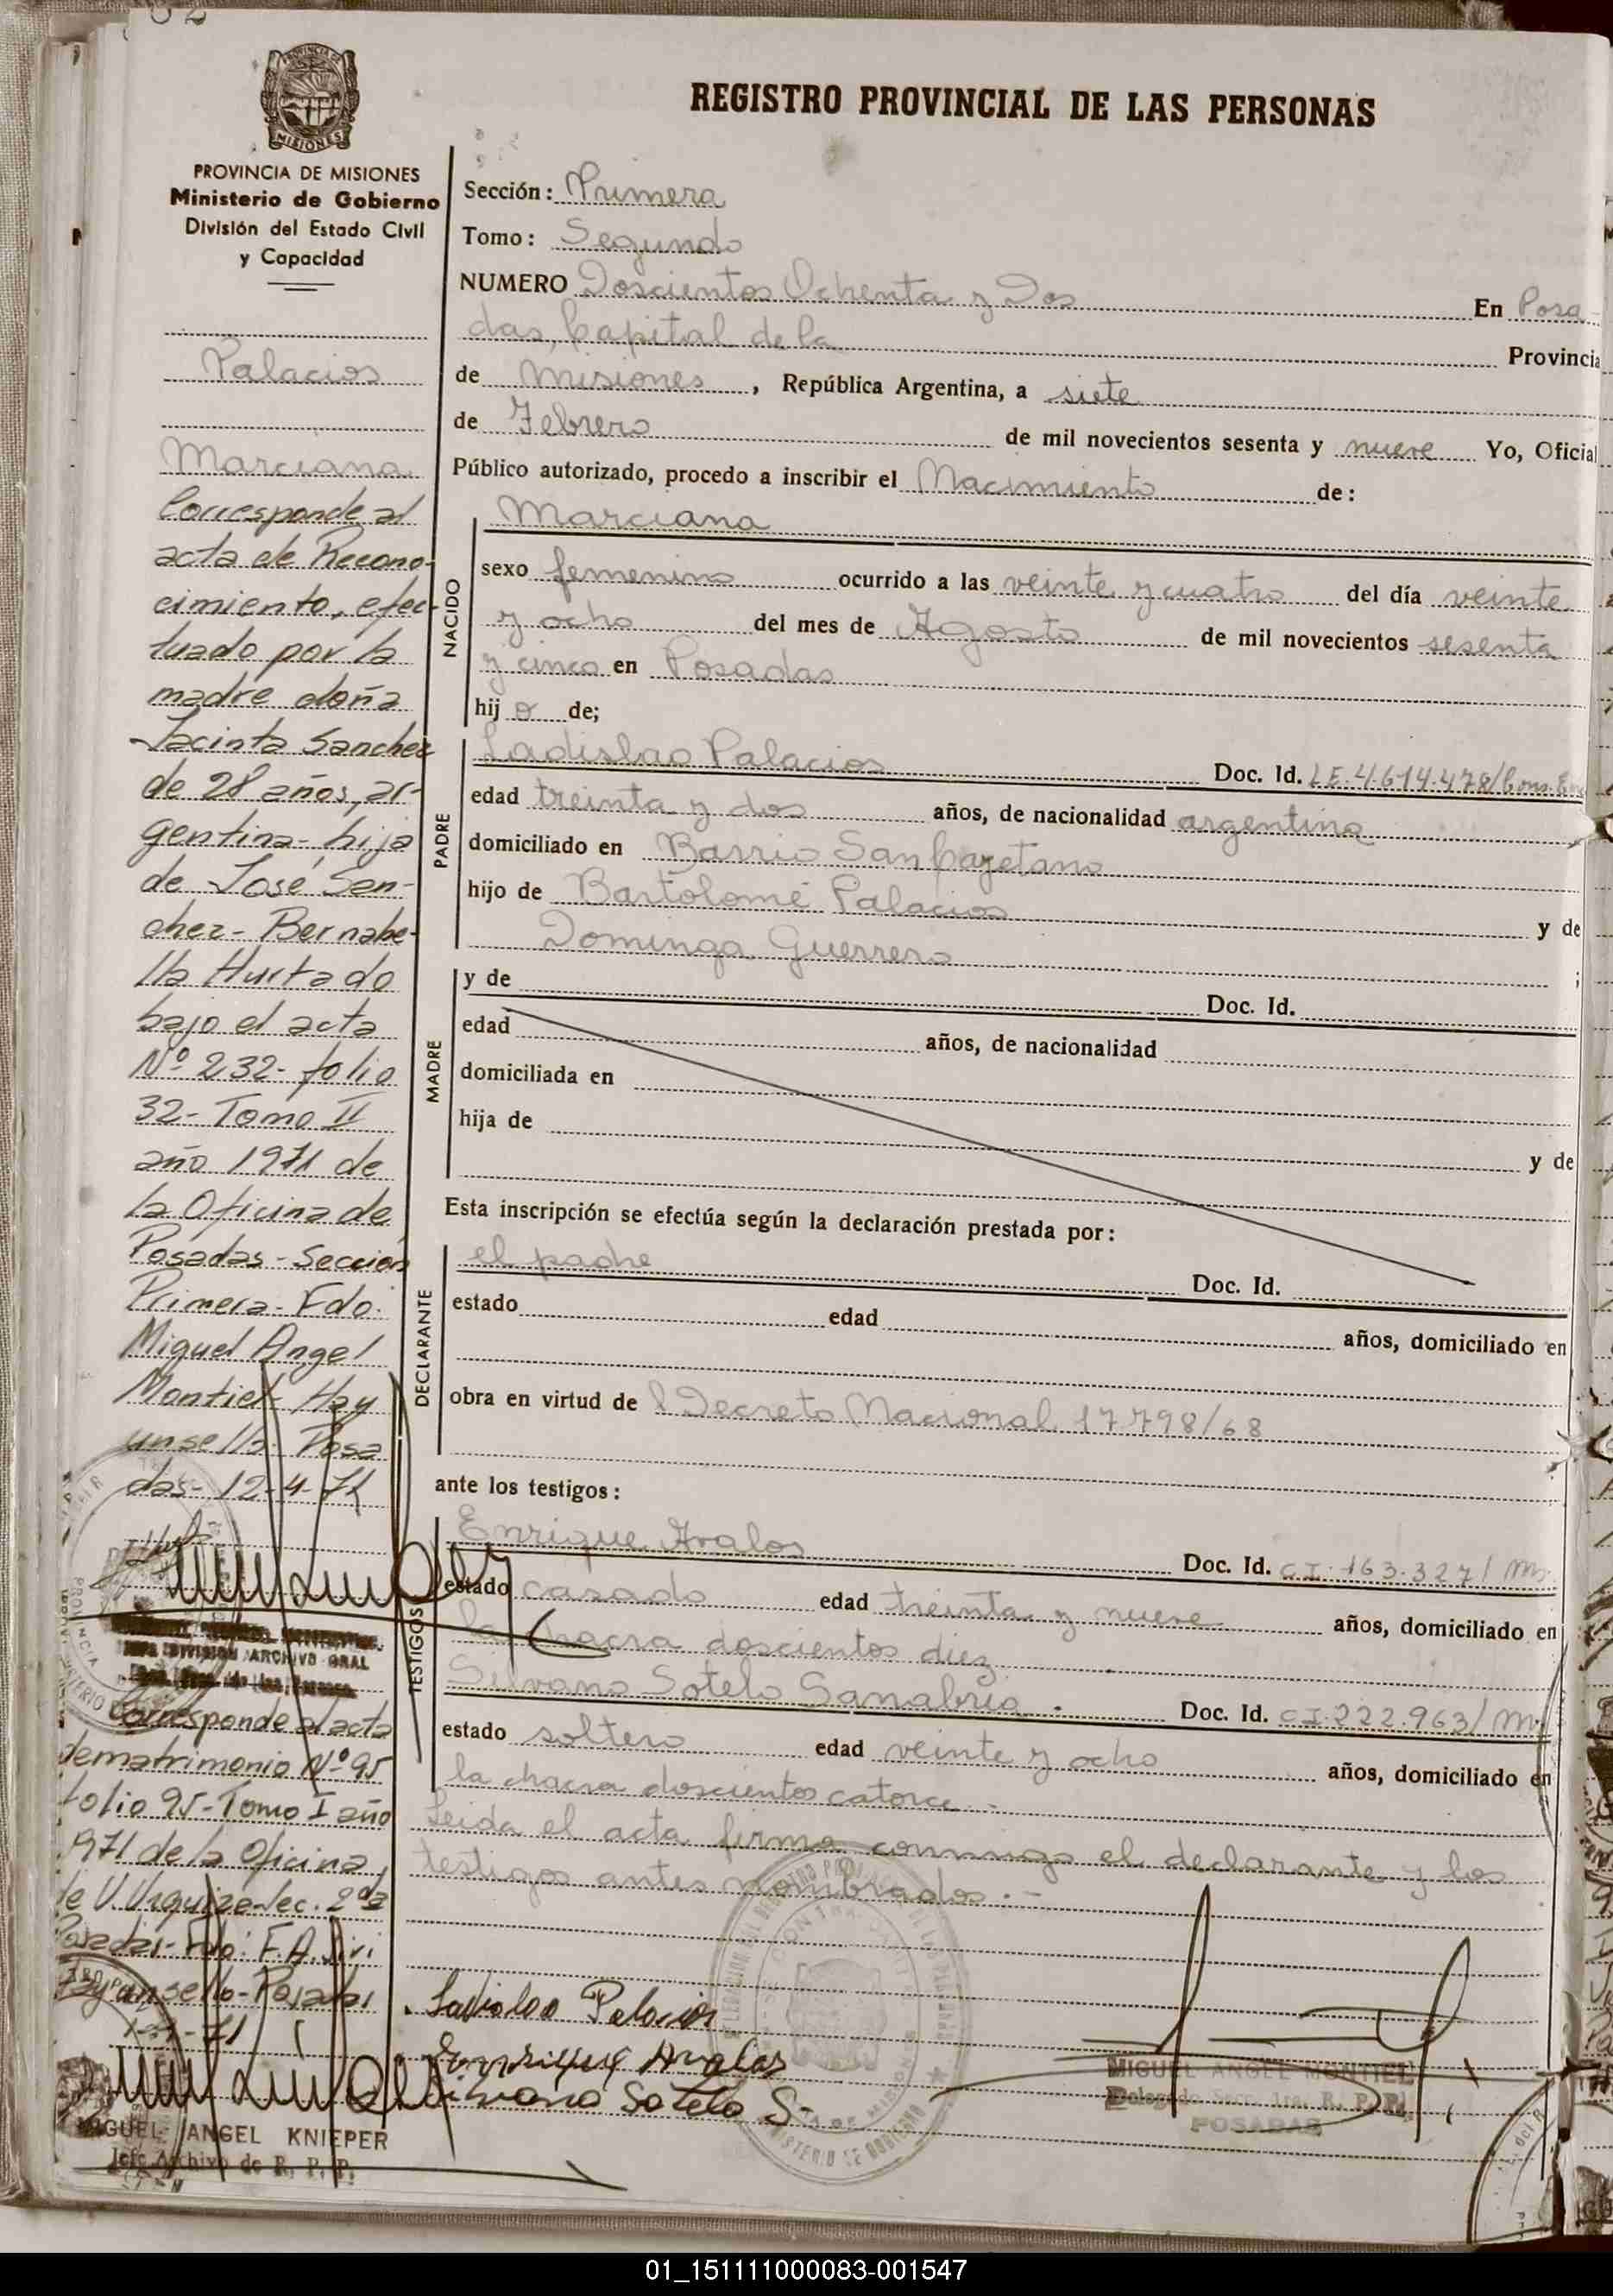 REGISTRO PROVINCIAL DE LAS PERSONAS
MISIONES
PROVINCIA DE MISIONES
Ministerio de Gobierno
División del Estado Civil
y Capacidad
Palacios
Marciana
Corresponde al
acta de Recono-
cimiento, efec-
tuado por la
madre doña
Jacinta Sanchez
de 28 años, ar-
gentina- hija
de José San-
chez- Bernabe-
lla Hurtado
bajo el acta
Nº 232- folio
32- Tomo II
año 1971 de
la Oficina de
Posadas- Sección
Primera- Fdo:
Miguel Angel
Montiel- Hay
un sello- Posa
das- 12-4-71
DIVISION ARCHIVO GRAL
Corresponde al acta
de matrimonio Nº 95
folio 95- Tomo I año
1971 de la Oficina
de V. Urquiza- Sec. 2da
Posadas- Fdo: F.A.
Hay un sello- Posadas
MIGUEL ANGEL KNIEPER
Jefe Archivo de R. P. P.
Sección: Primera
Tomo: Segundo
NUMERO Doscientos Ochenta y Dos En Posa-
das, Capital de la Provincia
de Misiones, República Argentina, a siete
de Febrero de mil novecientos sesenta y nueve Yo, Oficial
Público autorizado, procedo a inscribir el Nacimiento de:
NACIDO
Marciana
sexo femenino ocurrido a las veinte y cuatro del día veinte
y ocho del mes de Agosto de mil novecientos sesenta
y cinco en Posadas
hij a de;
PADRE
Ladislao Palacios Doc. Id. L.E. 4.614.478/
edad treinta y dos años, de nacionalidad argentina
domiciliado en Barrio San Cayetano
hijo de Bartolomé Palacios y de
Dominga Guerrero ;
MADRE
y de Doc. Id.
edad años, de nacionalidad
domiciliada en
hija de y de
Esta inscripción se efectúa según la declaración prestada por:
DECLARANTE
el padre Doc. Id.
estado edad años, domiciliado en
obra en virtud del Decreto Nacional 17798/68
ante los testigos:
TESTIGOS
Enrique Avalos Doc. Id. C.I. 163.327/
estado casado edad treinta y nueve años, domiciliado en
la chacra doscientos diez
Silvano Sotelo Sanabria. Doc. Id. C.I. 222.963/
estado soltero edad veinte y ocho años, domiciliado en
la chacra doscientos catorce.-
Leida el acta firma conmigo el declarante y los
testigos antes nombrados.-
Ladislao Palacios
Enrique Avalos
Silvano Sotelo S-
MIGUEL ANGEL MONTIEL
Delegado Secc. 1ra. R. P. P.
POSADAS
01_151111000083-001547